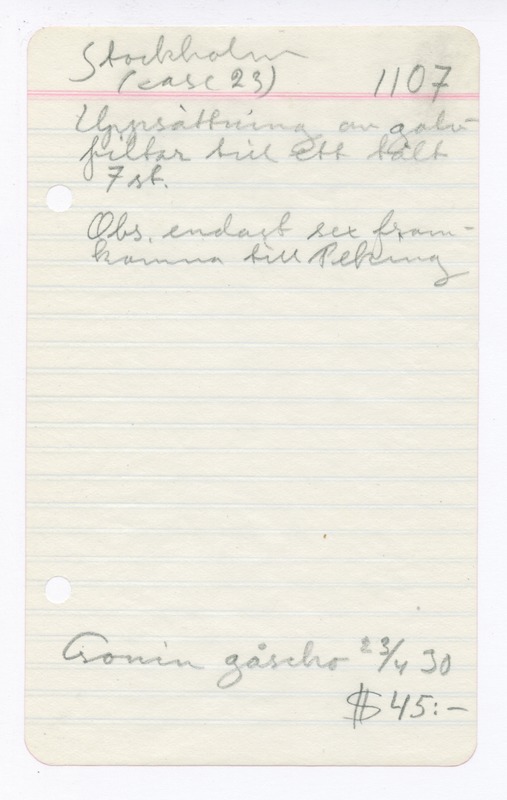 Stockholm
(case 23) 1107
Uppsättning av golv-
filtar till ett tält
7 st.
Obs. endast sex fram-
komna till Peking
gåscho 23/4 30
$ 45:-